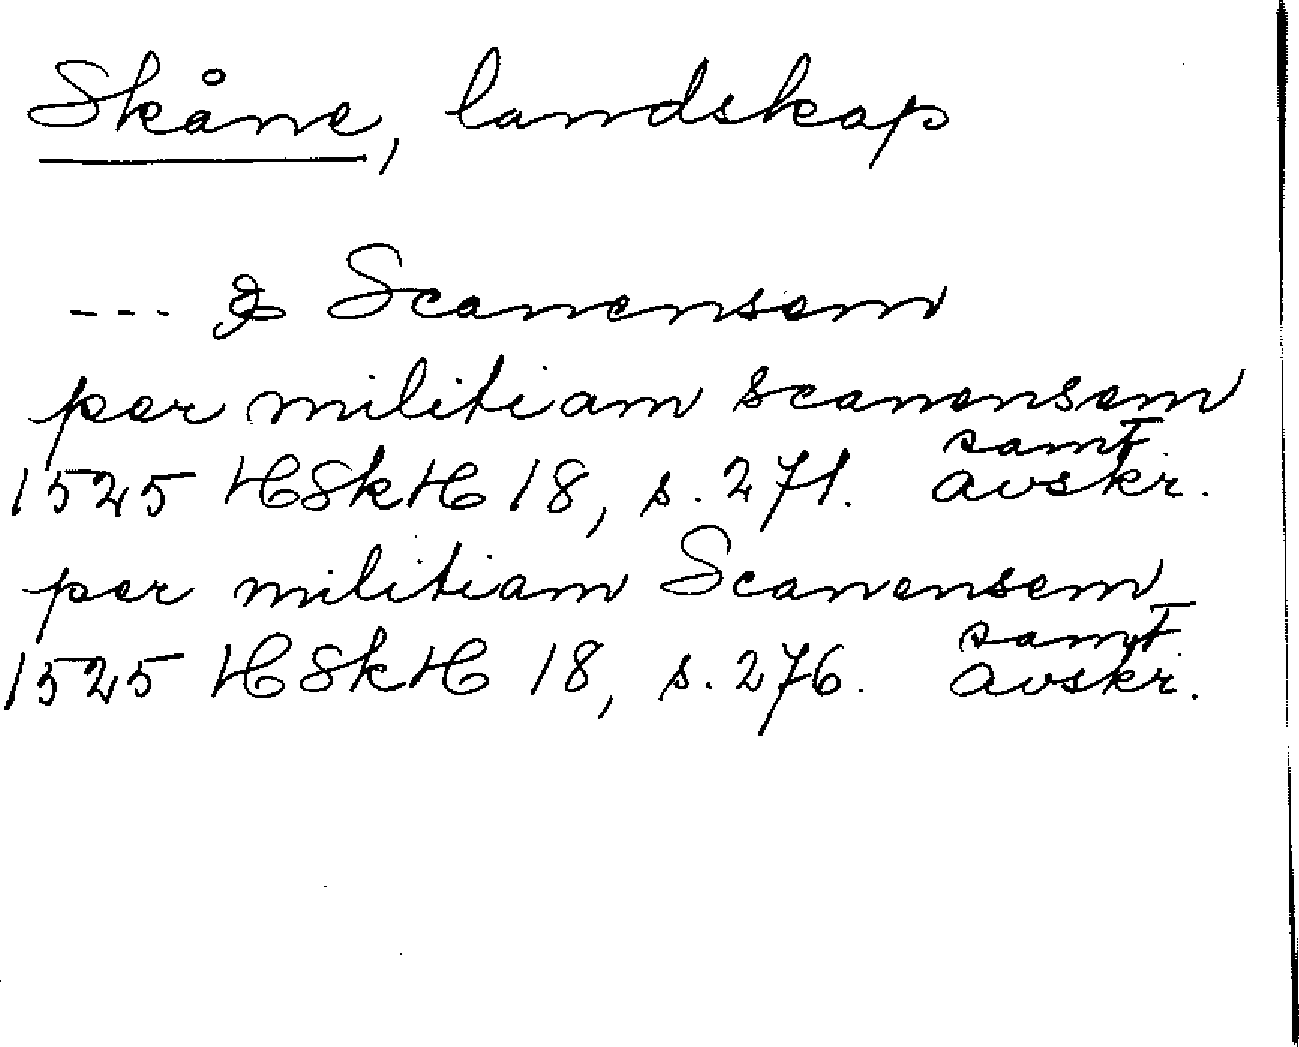 Skåne, landskap
--- & Scanensem
per militiam scanensem
1525 HSkH 18, s. 271. samt. avskr.
per militiam Scanensem
1525 HSkH 18, s. 276. samt. avskr.